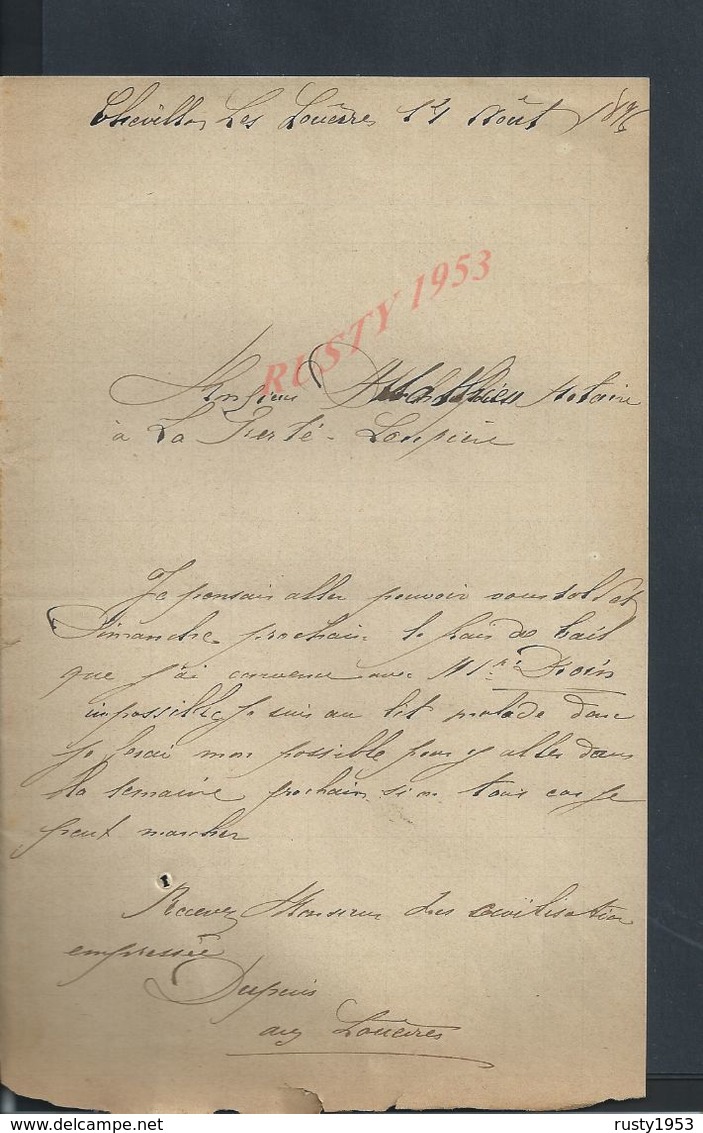 Chevillon Les Louëres 12 Août 1896
RUSTY 1953
Monsieur Mathieu Notaire
à La Ferté-Loupière
Je pensais aller pouvoir vous solder
Dimanche prochain le frais de bail
que j'ai convenue avec Mr. Droin
impossible Je suis au lit malade donc
je ferai mon possible pour y aller dans
la semaine prochain si en tous cas je
peut marcher
Recevez Monsieur des civilisation
empressée
Dupuis
aux Louëres
delcampe.net
rusty1953